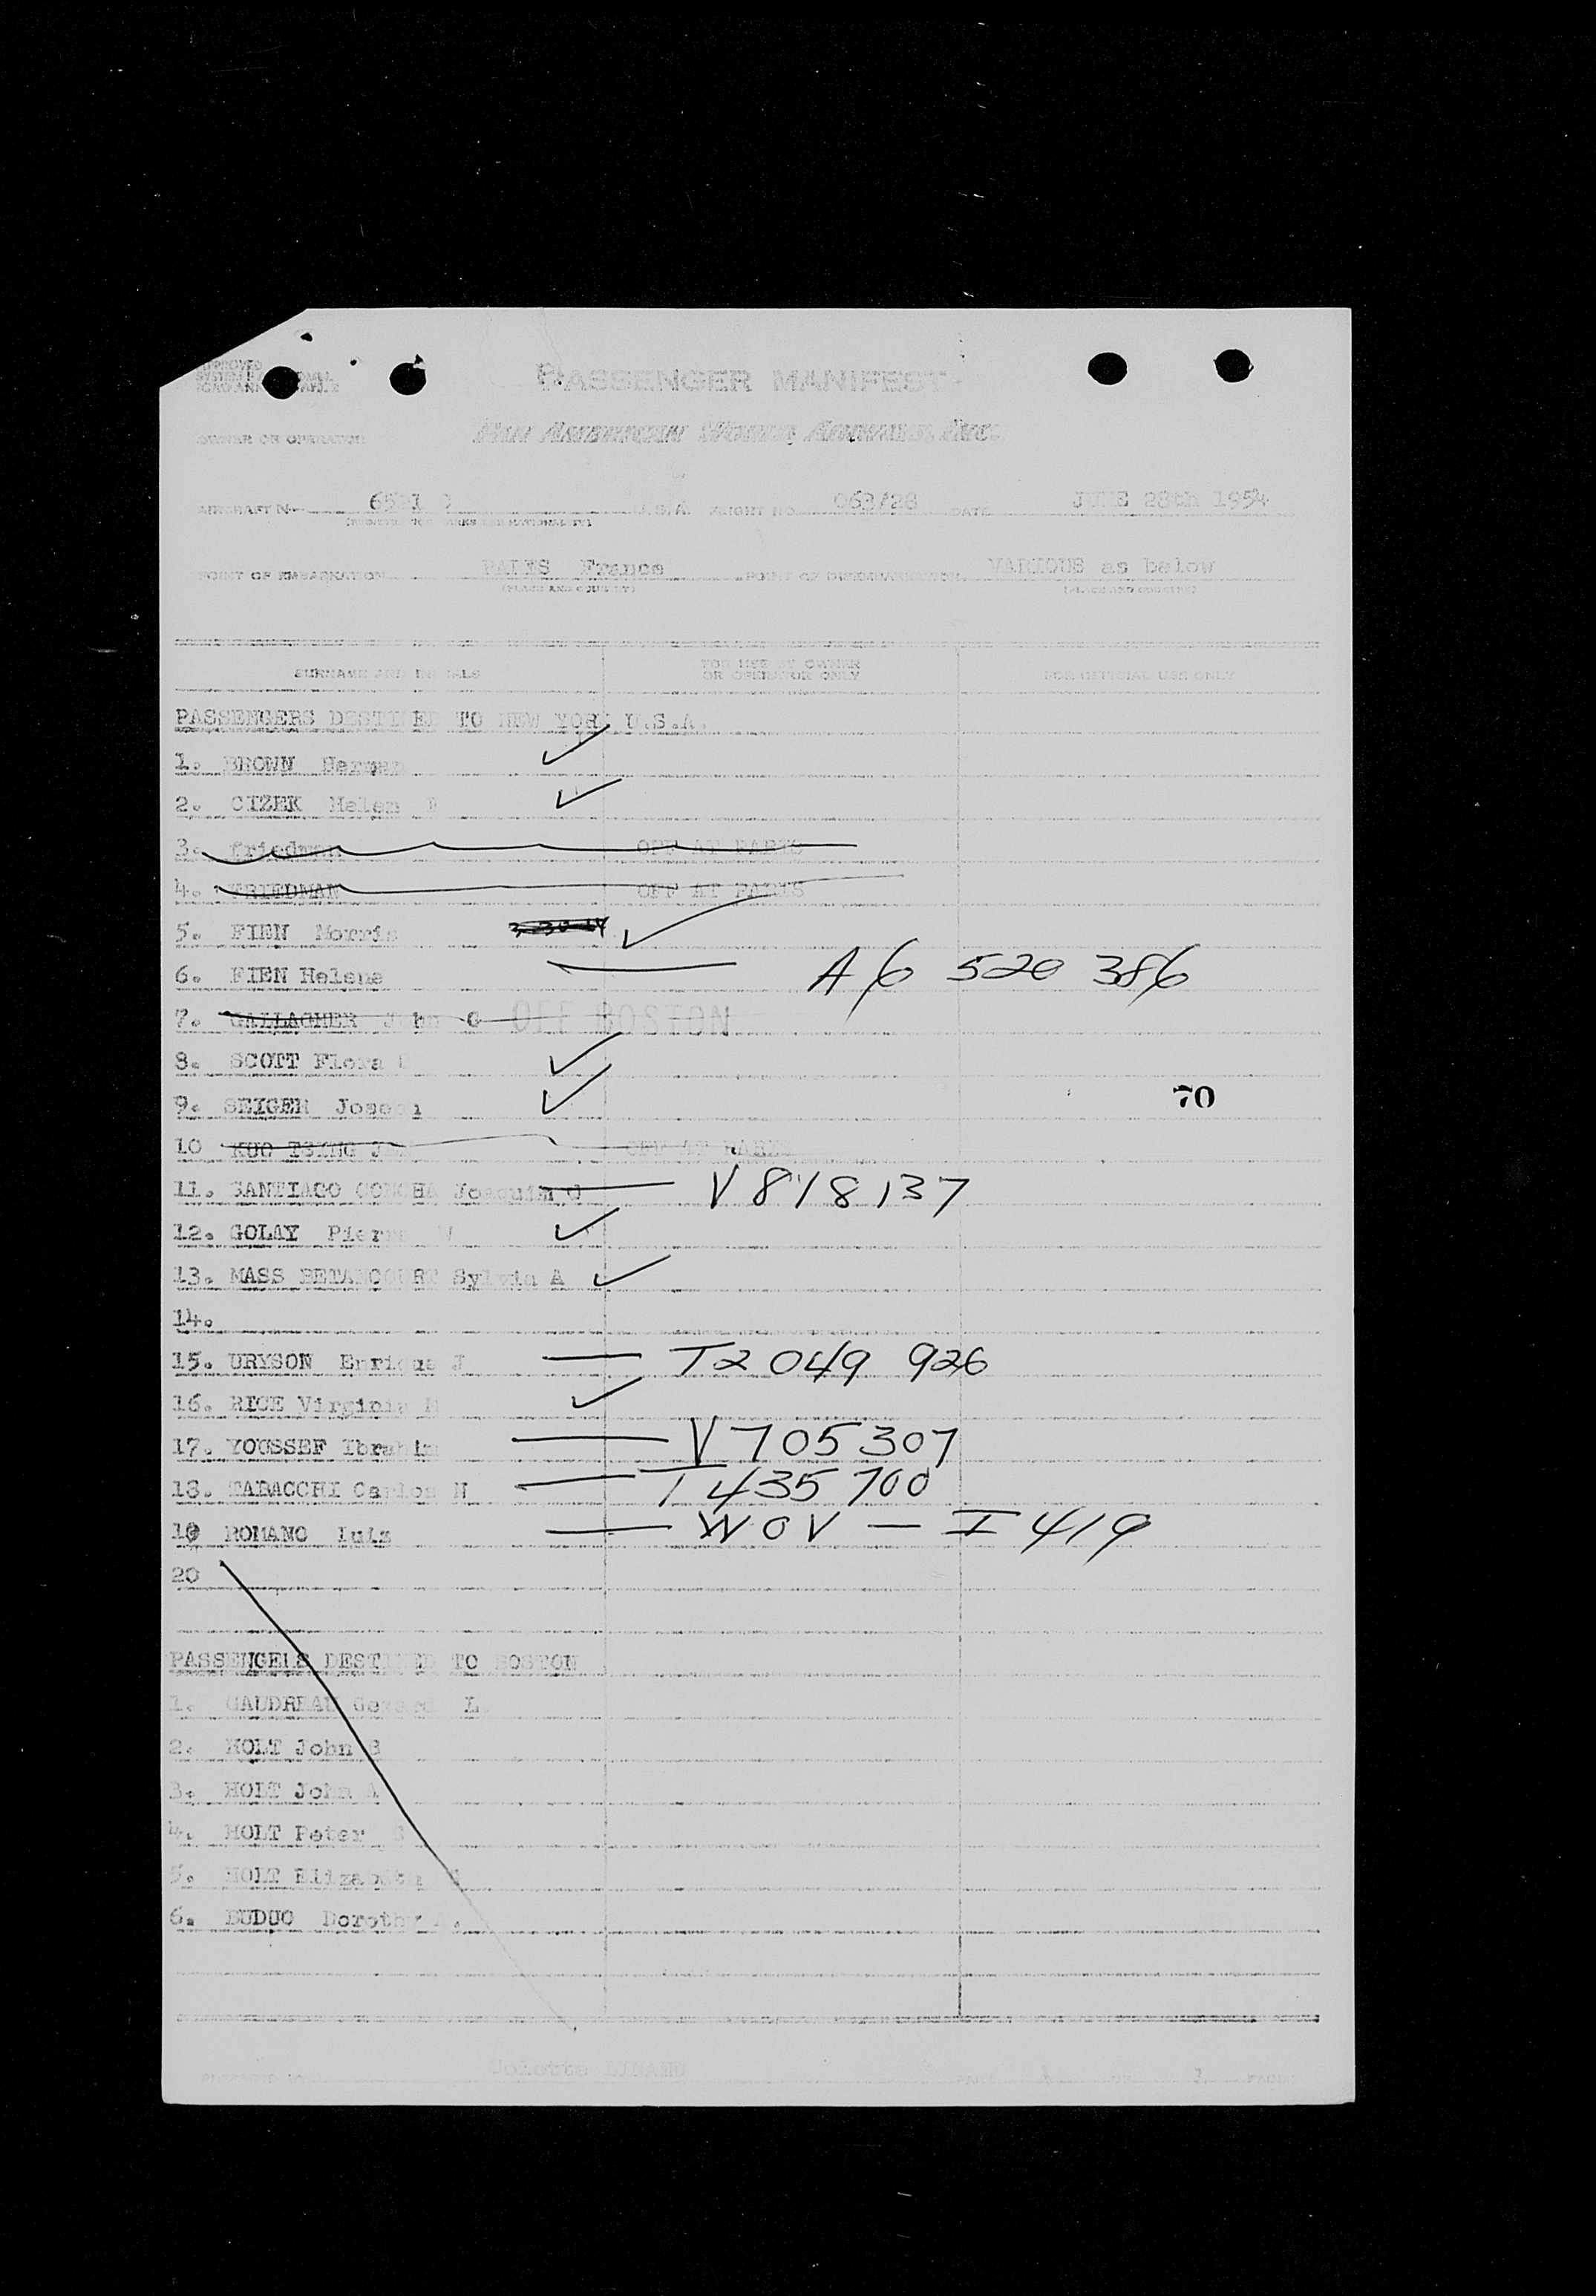 PASSENGER MANIFEST
OWNER OR OPERATOR PAN AMERICAN WORLD AIRWAYS, INC.
AIRCRAFT No U.S.A. FLIGHT NO. 063/28 DATE JUNE 28th 1954
POINT OF EMBARKATION PARIS France POINT OF DISEMBARKATION VARIOUS as below
(PLACE AND COUNTRY) (PLACE AND COUNTRY)
SURNAME AND INITIALS FOR USE BY OWNER OR OPERATOR ONLY FOR OFFICIAL USE ONLY
PASSENGERS DESTINED TO NEW YORK U.S.A.
1. BROWN Herman ✓
2. CIZEK Helen ✓
3. friedman OFF AT PARIS
4. FRIEDMAN OFF AT PARIS
5. FIEN Morris ✓
6. FIEN Helene — A6 520 386
7. GALLAGHER John G OFF BOSTON
8. SCOTT Flora ✓
9. SEIGER Joseph ✓
70
10 KUO TSING OFF AT PARIS
11. SANTIAGO CONCHA Joaquim — V 818137
12. GOLAY Pierre ✓
13. MASS BETANCOURT Sylvia A ✓
14.
15. URYSON Enrique J — T2 049 926
16. RICE Virginia ✓
17. YOUSSEF Ibrahim — V705307
18. TABACCHI Carlos N — T 435 700
19 ROMANO Luis — WOV — I 419
20
PASSENGERS DESTINED TO BOSTON
1. GAUDREAU Gerard L
2. HOLT John B
3. HOLT John A
4. HOLT Peter
5. HOLT Elizabeth
6. DUDUO Dorothy
Colette